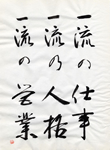 一流の仕事
一流の人格
一流の営業